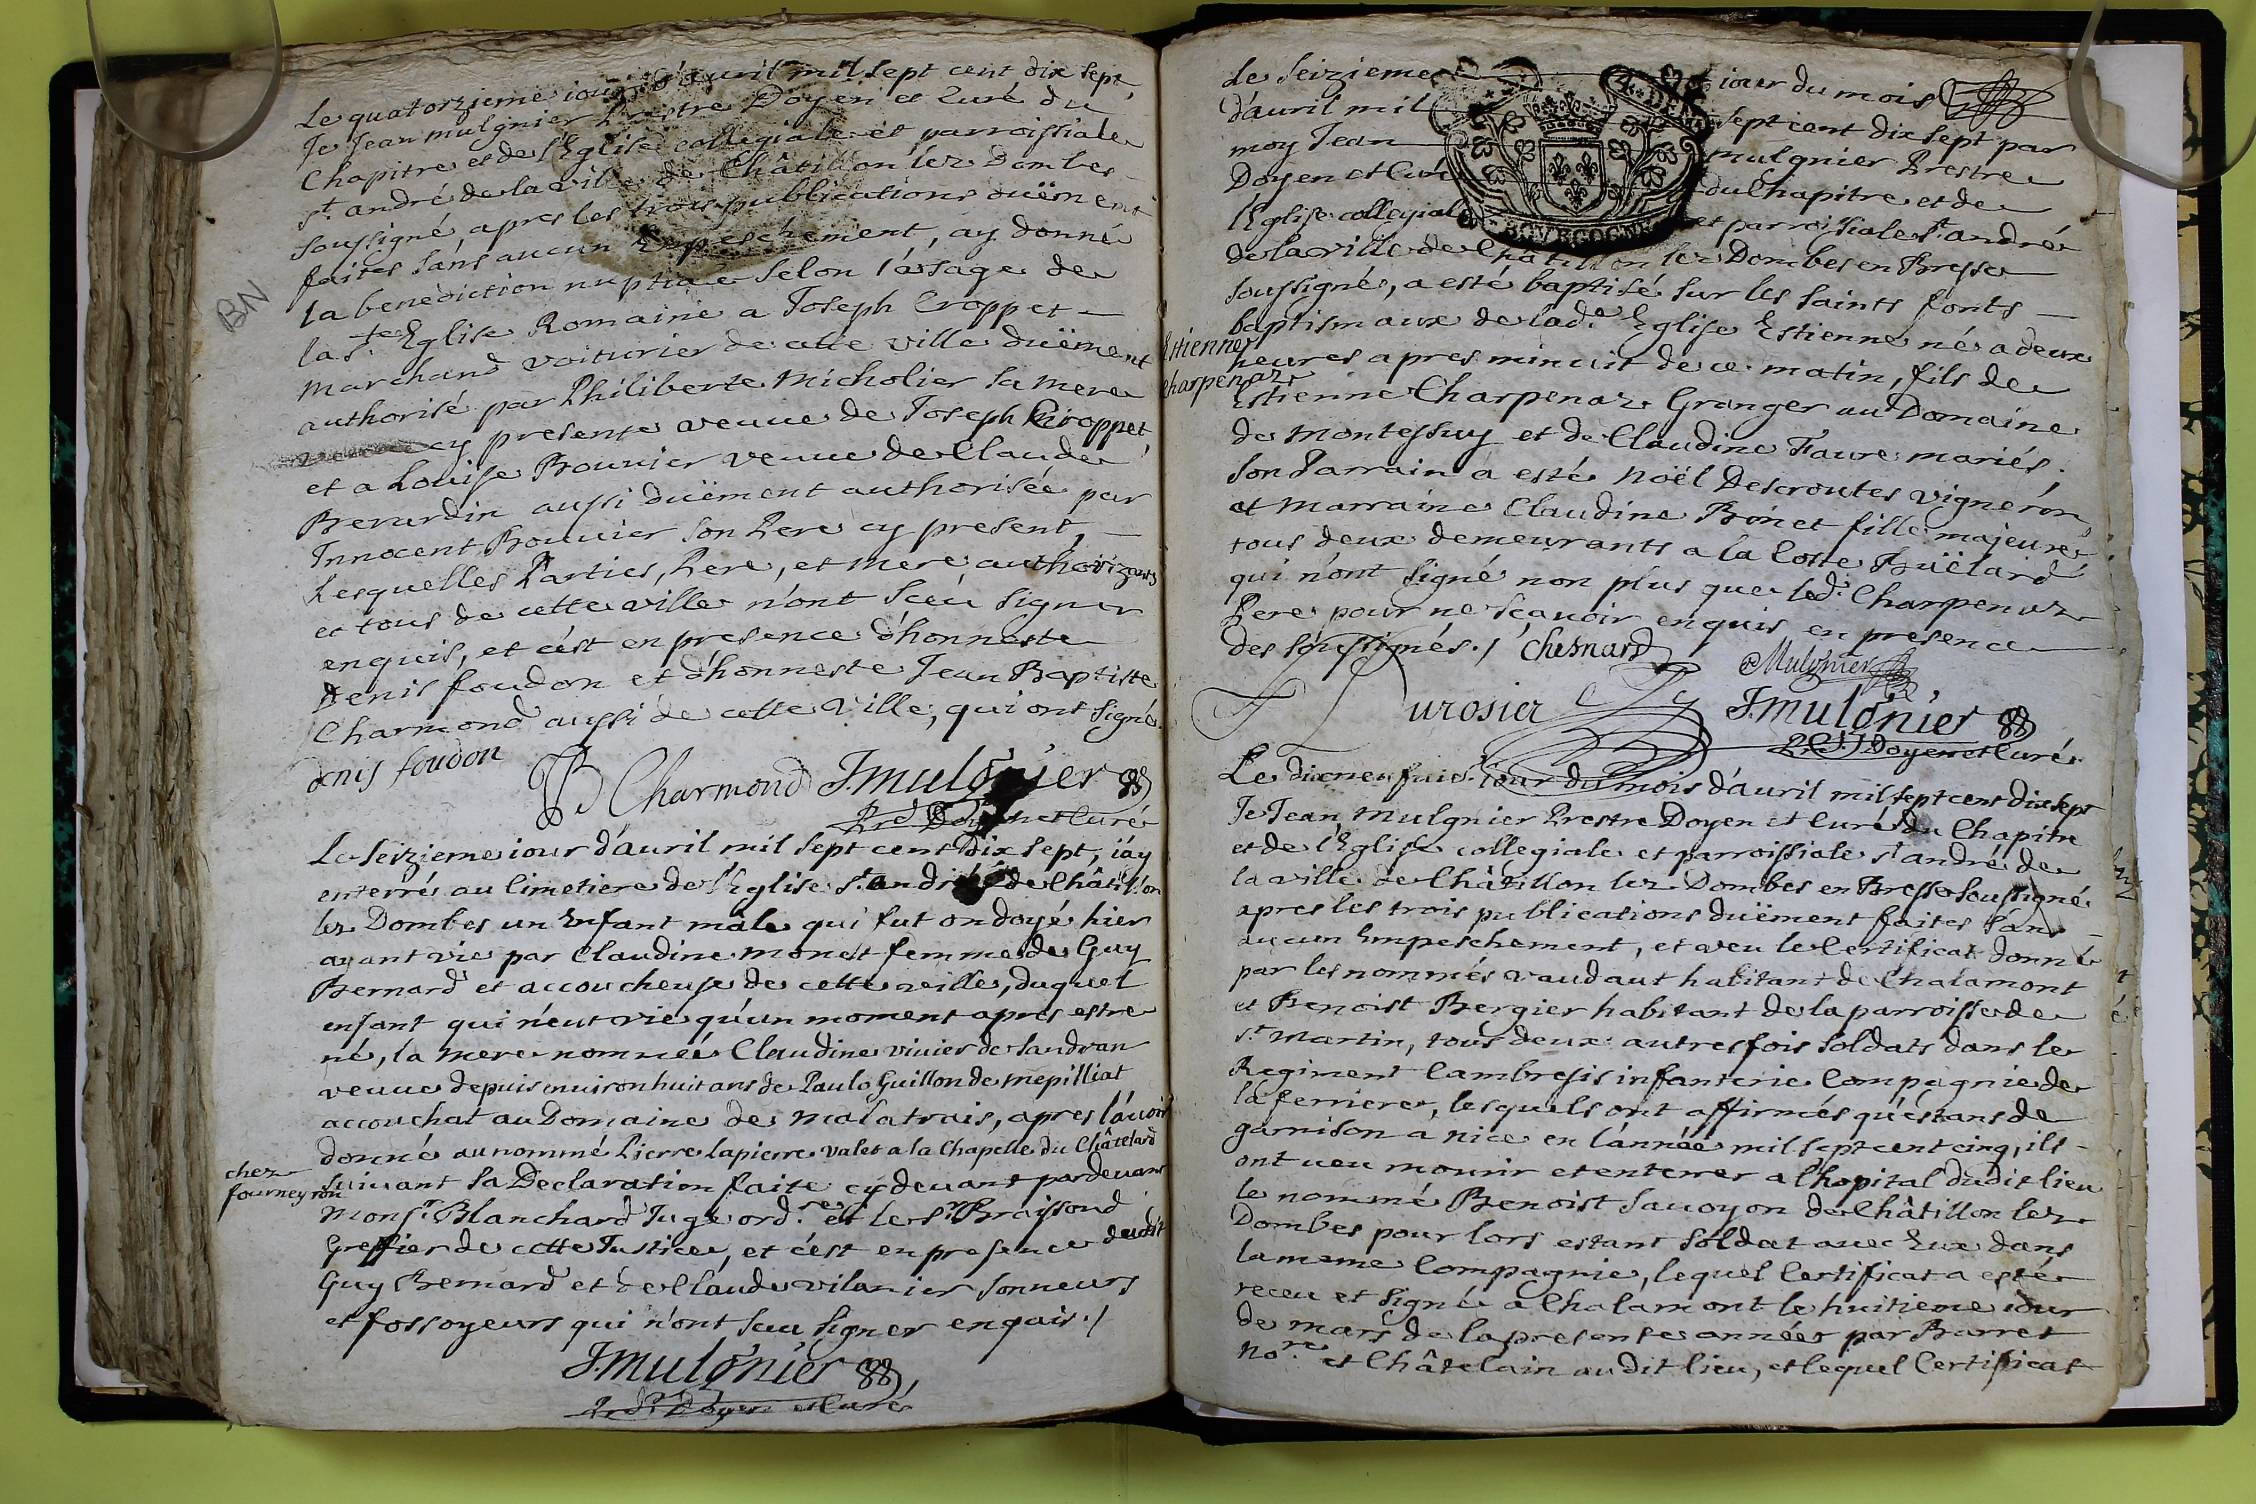 Le quatorzieme iour d'auril mil sept cent dix sept,
Je Jean mulgnier Prestre Doyen et Curé du
Chapitre et de l'Eglise collegiale et parroissiale
st. andré de la ville de Châtillon lez Dombes
soussigné, apres les trois publications duëment
faites sans aucun Empeschement, ay donné
la benediction nuptiale selon l'usage de
la ste. Eglise Romaine a Joseph Croppet
marchand voiturier de cette ville duëment
authorisé par Philiberte Micholier sa mere
cy presente veuve de Joseph Croppet,
et a Louise Bouvier veuve de Claude
Berardin aussi duëment authorisée par
Innocent Bouvier son Pere cy present,
Lesquelles Parties, Pere, et mere authorizants
et tous de cette ville n'ont sceu signer
enquis, et c'est en presence d'honneste
Denis foudon et d'honneste Jean Baptiste
Charmond aussi de cette ville, qui ont signé.
denis foudon JB Charmond J. mulgnier
Pre. Doyen et Curé
BN
Le seizieme iour d'auril mil sept cent dix sept, i'ay
enterré au Cimetiere de l'Eglise st. andré de Châtillon
lez Dombes un Enfant mâle qui fut ondoyé hier
ayant vie par Claudine monet femme de Guy
Bernard et accoucheuse de cette ville, duquel
enfant qui n'eut vie qu'un moment apres estre
né, la mere nommée Claudine vivier de Sandran
veuve depuis enuiron huit ans de Paulo Guillon de mepilliat
accouchat au Domaine de malatrais, apres l'auoir
donné au nommé Pierre lapierre valet a la Chapelle du Châtelard
chez
fourneyron
suiuant sa Declaration faite cy deuant pardeuant
Monsr. Blanchard Juge ordre. et le sr. Braissoud
Greffier de cette Justice, et c'est en presence dudit
Guy Bernard et de Claude vilanier sonneurs
et fossoyeurs qui n'ont sceu signer enquis./
J. mulgnier
Pre. Doyen et Curé
Le seizieme iour du mois
d'auril mil sept cent dix sept par
moy Jean mulgnier Prestre
Doyen et Curé du Chapitre et de
l'Eglise collegiale et parroissiale st. andré
BOVRGOGNE
de la ville de Châtillon lez Dombes en Bresse
soussigné, a esté baptisé sur les saints fonts
baptismaux de lade. Eglise Estienne né a deux
Estienne
Charpenaz
heures apres minuit de ce matin, fils de
Estienne Charpenaz Granger au Domaine
de Montessuy et de Claudine Faure mariés;
son Parrain a esté Noël Descroutes vigneron,
et marraine Claudine Bonet fille majeure,
tous deux demeurants a la Coste
qui n'ont signé non plus que led. Charpenaz
Pere pour ne sçauoir enquis en presence
des soussignés./ Chesnard Mulgnier
Durosier J. mulgnier
Pre. Doyen et Curé.
Le dixneufuie. iour du mois d'auril mil sept cent dix sept
Je Jean Mulgnier Prestre Doyen et Curé du Chapitre
et de l'Eglise collegiale et parroissiale st andré de
la ville de Châtillon lez Dombes en Bresse soussigné
apres les trois publications duëment faites sans
aucun Empeschement, et aveu le Certificat donné
par les nommés vaudaut habitant de Chalamont
et Benoist Bergier habitant de la parroisse de
st. martin, tous deux autresfois soldats dans le
Regiment Cambresis infanterie Compagnie de
la ferriere, lesquels ont affirmés qu'estans de
garnison a nice en l'année mil sept cent cinq, ils
ont ueu mourir et enterrer a l'hopital dudit lieu
le nommé Benoist Sauoyon de Châtillon lez
Dombes pour lors estant soldat auec Eux dans
la meme Compagnie, lequel Certificat a esté
receu et signé a Chalamont le huitieme iour
de mars de la presente année par Barret
Nore. et Châtelain audit lieu, et lequel Certificat